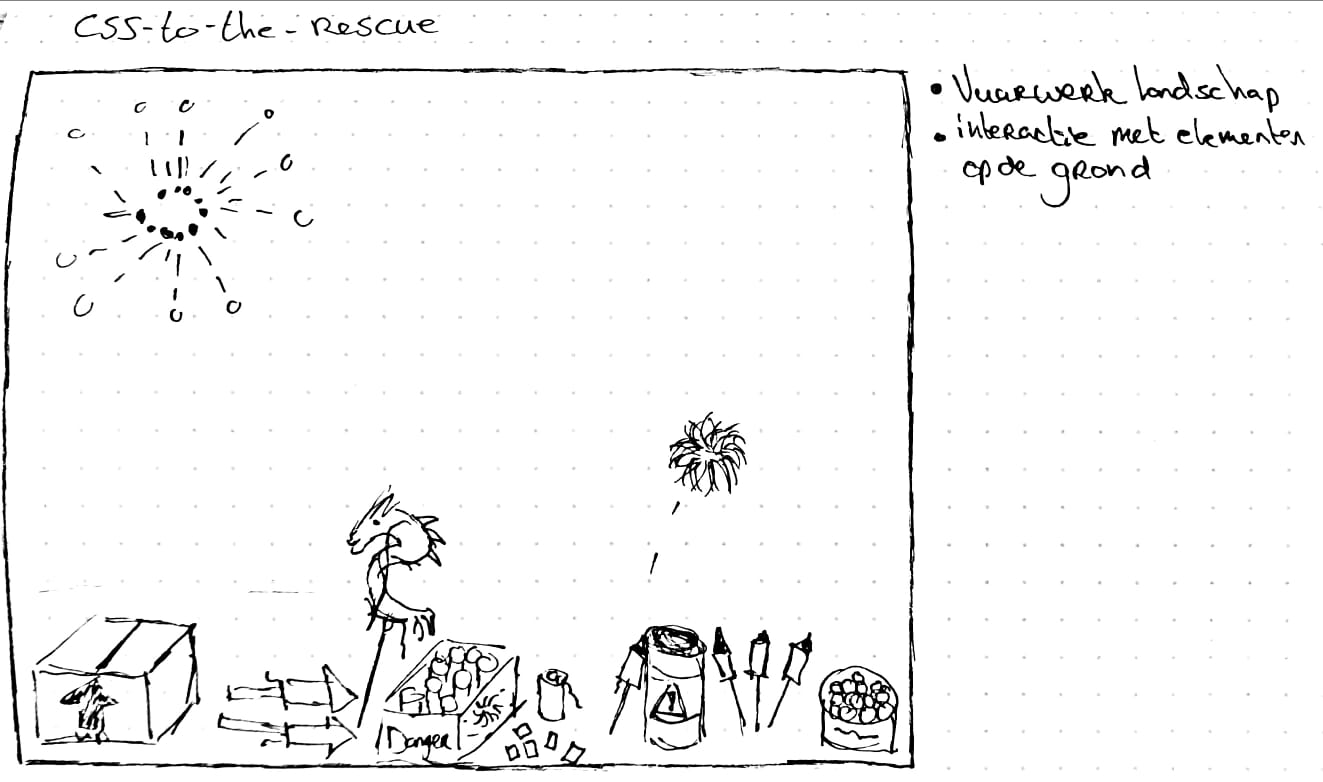 CSS-to-the-Rescue
• Vuurwerk landschap
• interactie met elementen
op de grond
Danger
!